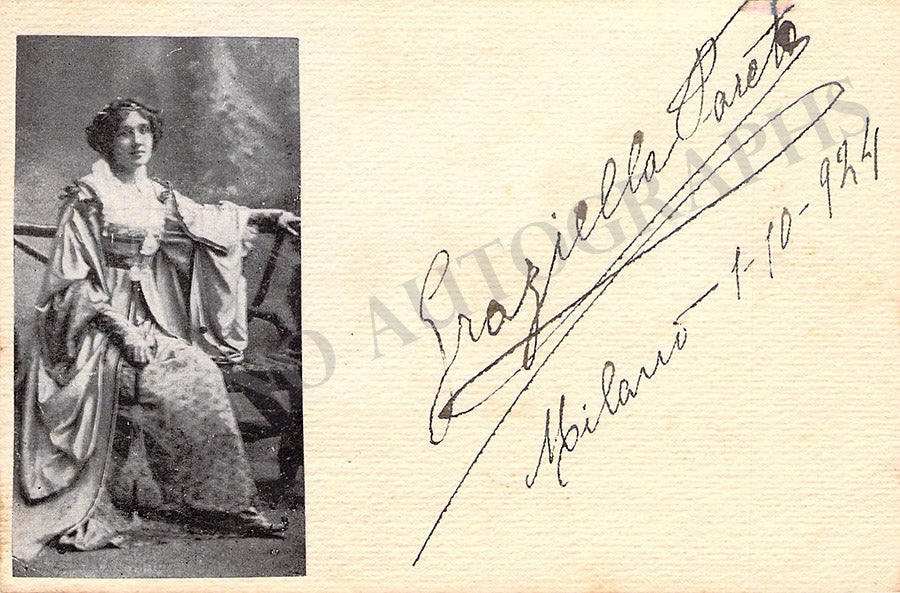 Graziella Pareto
Milano - 1-10-924
AUTOGRAPHS